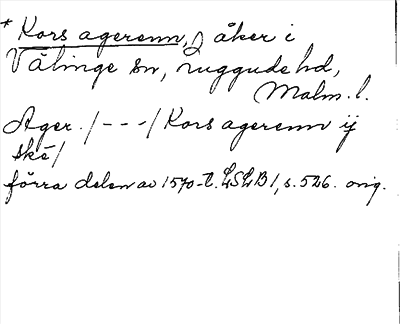 * Kors agerenn, åker i
Välinge sn, Luggude hd,
Malm. l.
Ager. /---/ Kors agerenn ij
skē/
förra delen av 1570-t. LSLB 1, s. 526. orig.